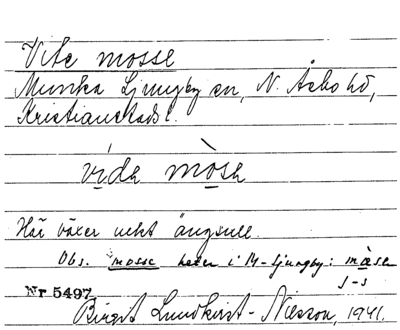 Vite mosse
Munka Ljungby sn, N. Åsbo hd,
Kristianstads l.
vídə mòsə
Här växer vekt ängsull.
Obs. mosse heter i M-Ljungby: màsen
s-s
Nr 5497
Birgit Lundkvist-Nilsson, 1941.